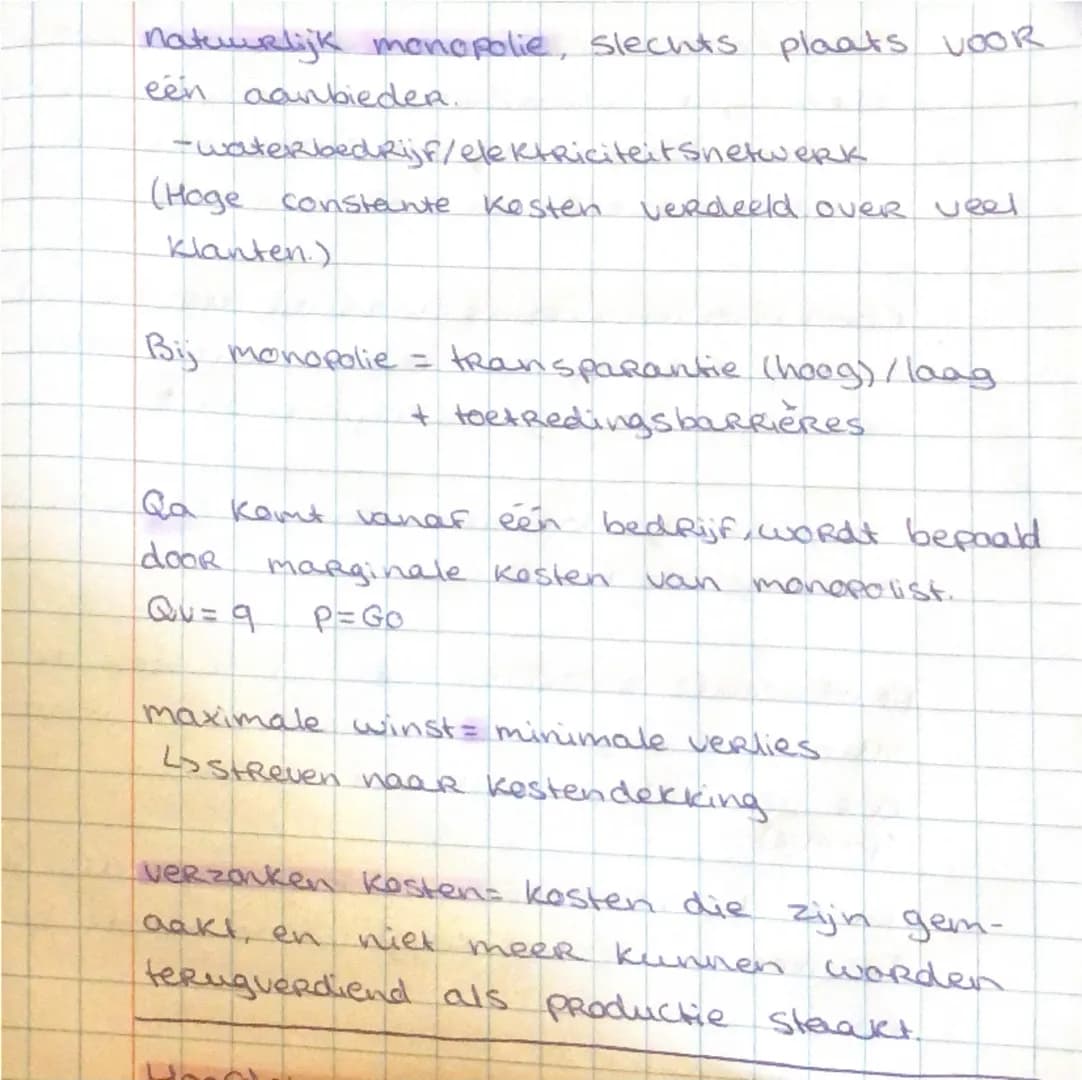 natuurlijk monopolie, slechts plaats voor
één aanbieder.
-waterbedrijf/elektriciteitsnetwerk
(Hoge constante kosten verdeeld over veel
klanten.)
Bij monopolie = transparantie (hoog)/laag
+ toetredingsbarrières
Qa komt vanaf één bedrijf, wordt bepaald
door marginale kosten van monopolist.
Qv = q P=GO
maximale winst = minimale verlies
↳ streven naar kostendekking
verzonken kosten= kosten die zijn gem-
aakt, en niet meer kunnen worden
terugverdiend als productie staakt.